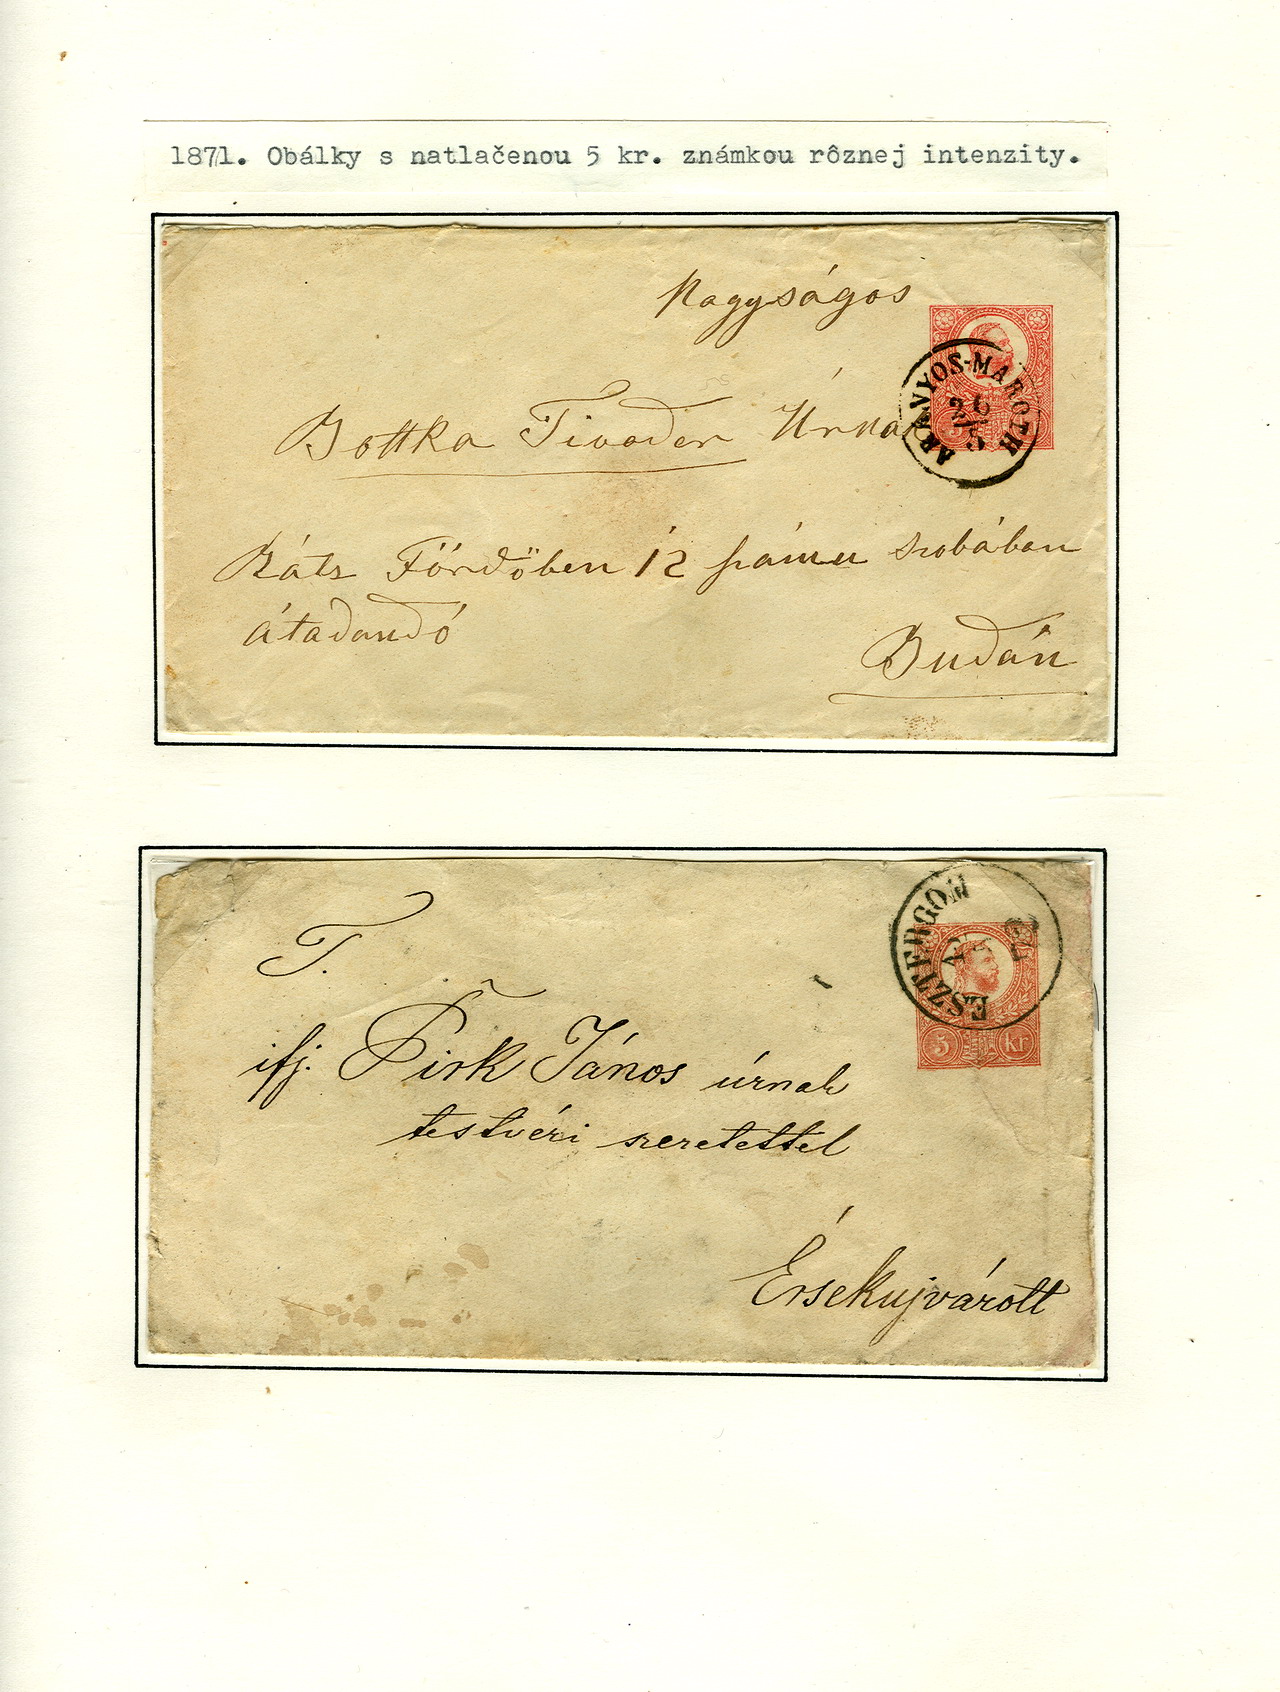 1871. Obálky s natlačenou 5 kr. známkou rôznej intenzity.
Nagyságos
Bottka Tivader Úrna
ARANYOS-MAROTH
26
5
Ráts Fördőben 12 számu szobában
átadandó
Budán
ESZTERGOM
5 kr
T.
ifj. Pirk János úrnak
testvéri szeretettel
Érsekujvárott